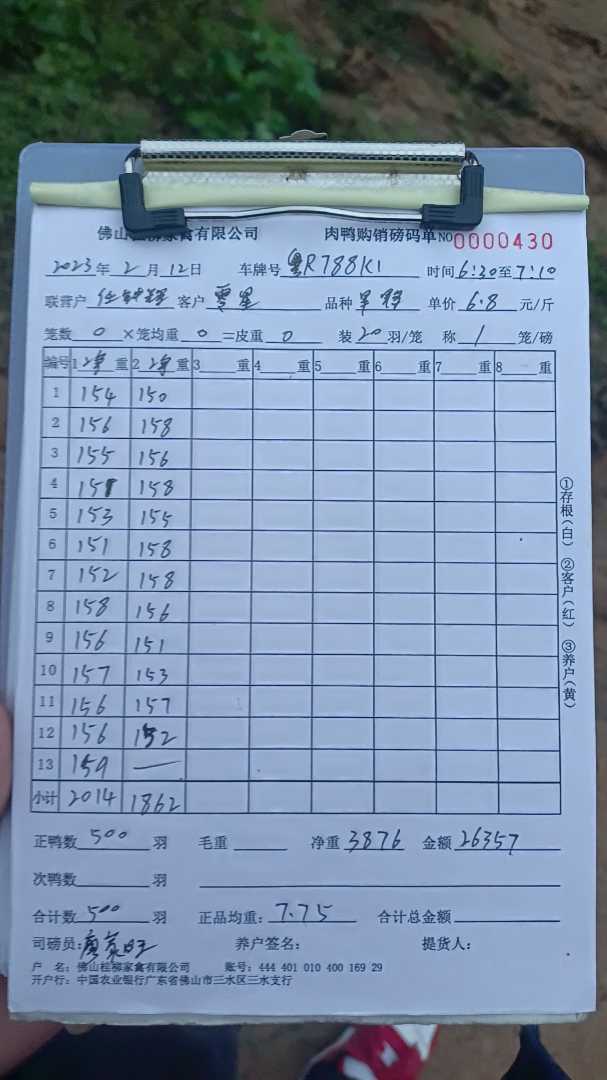 佛山桂柳家禽有限公司 肉鸭购销磅码单NO0000430
2023年2月12日 车牌号粤R788K1 时间6:20至7:10
联营户 客户零星 品种 单价6.8元/斤
笼数0×笼均重0=皮重0 装20羽/笼 称1笼/磅
编号 1净重 2净重 3重 4重 5重 6重 7重 8重
1 154 150
2 156 158
3 155 156
4 151 158
5 153 155
6 151 158
7 152 158
8 158 156
9 156 151
10 157 153
11 156 157
12 156 152
13 159 —
小计 2014 1862
①存根(白) ②客户(红) ③养户(黄)
正鸭数500羽 毛重 净重3876 金额26357
次鸭数 羽
合计数500羽 正品均重:7.75 合计总金额
司磅员: 养户签名: 提货人:
户 名:佛山桂柳家禽有限公司 账号:444 401 010 400 169 29
开户行:中国农业银行广东省佛山市三水区三水支行